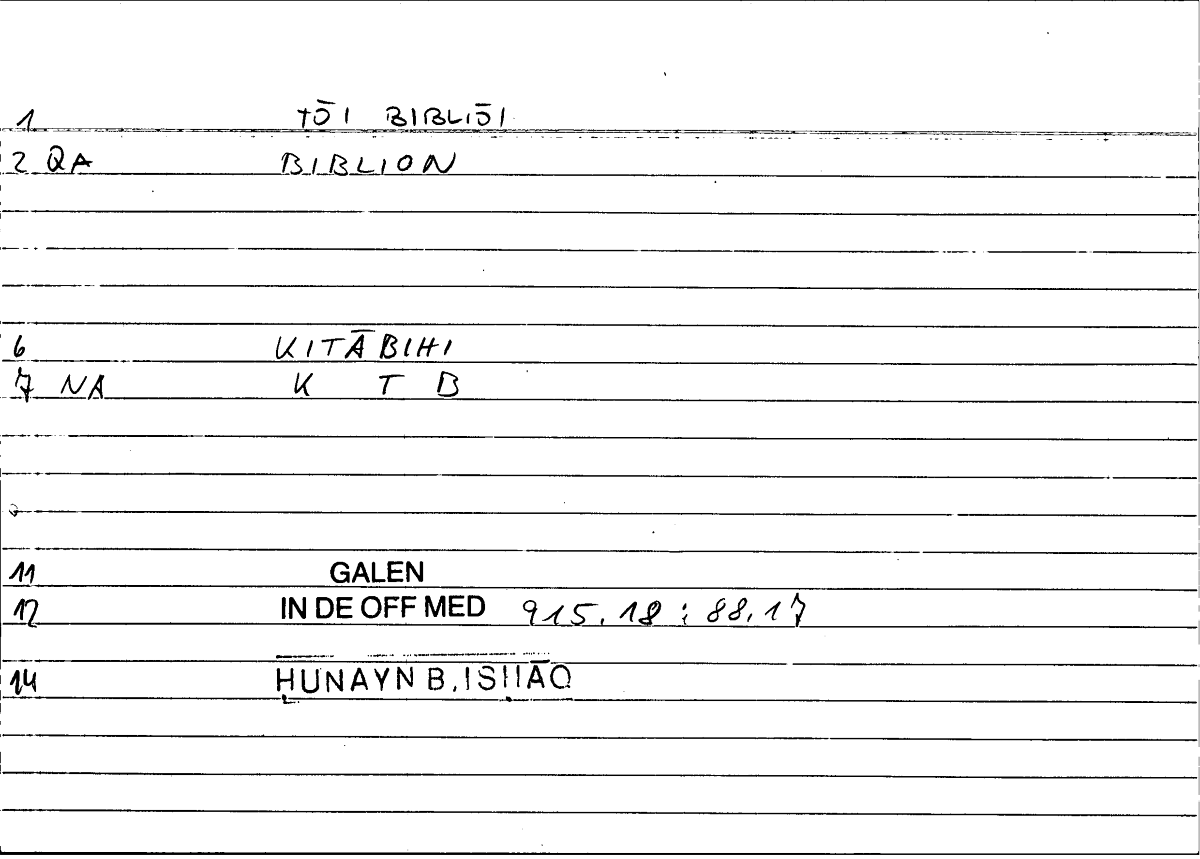 1 TŌI BIBLIŌI
2 QA BIBLION
6 KITĀBIHI
7 NA K T B
11 GALEN
12 IN DE OFF MED 915.18 : 88.17
14 ḤUNAYN B. ISḤĀQ